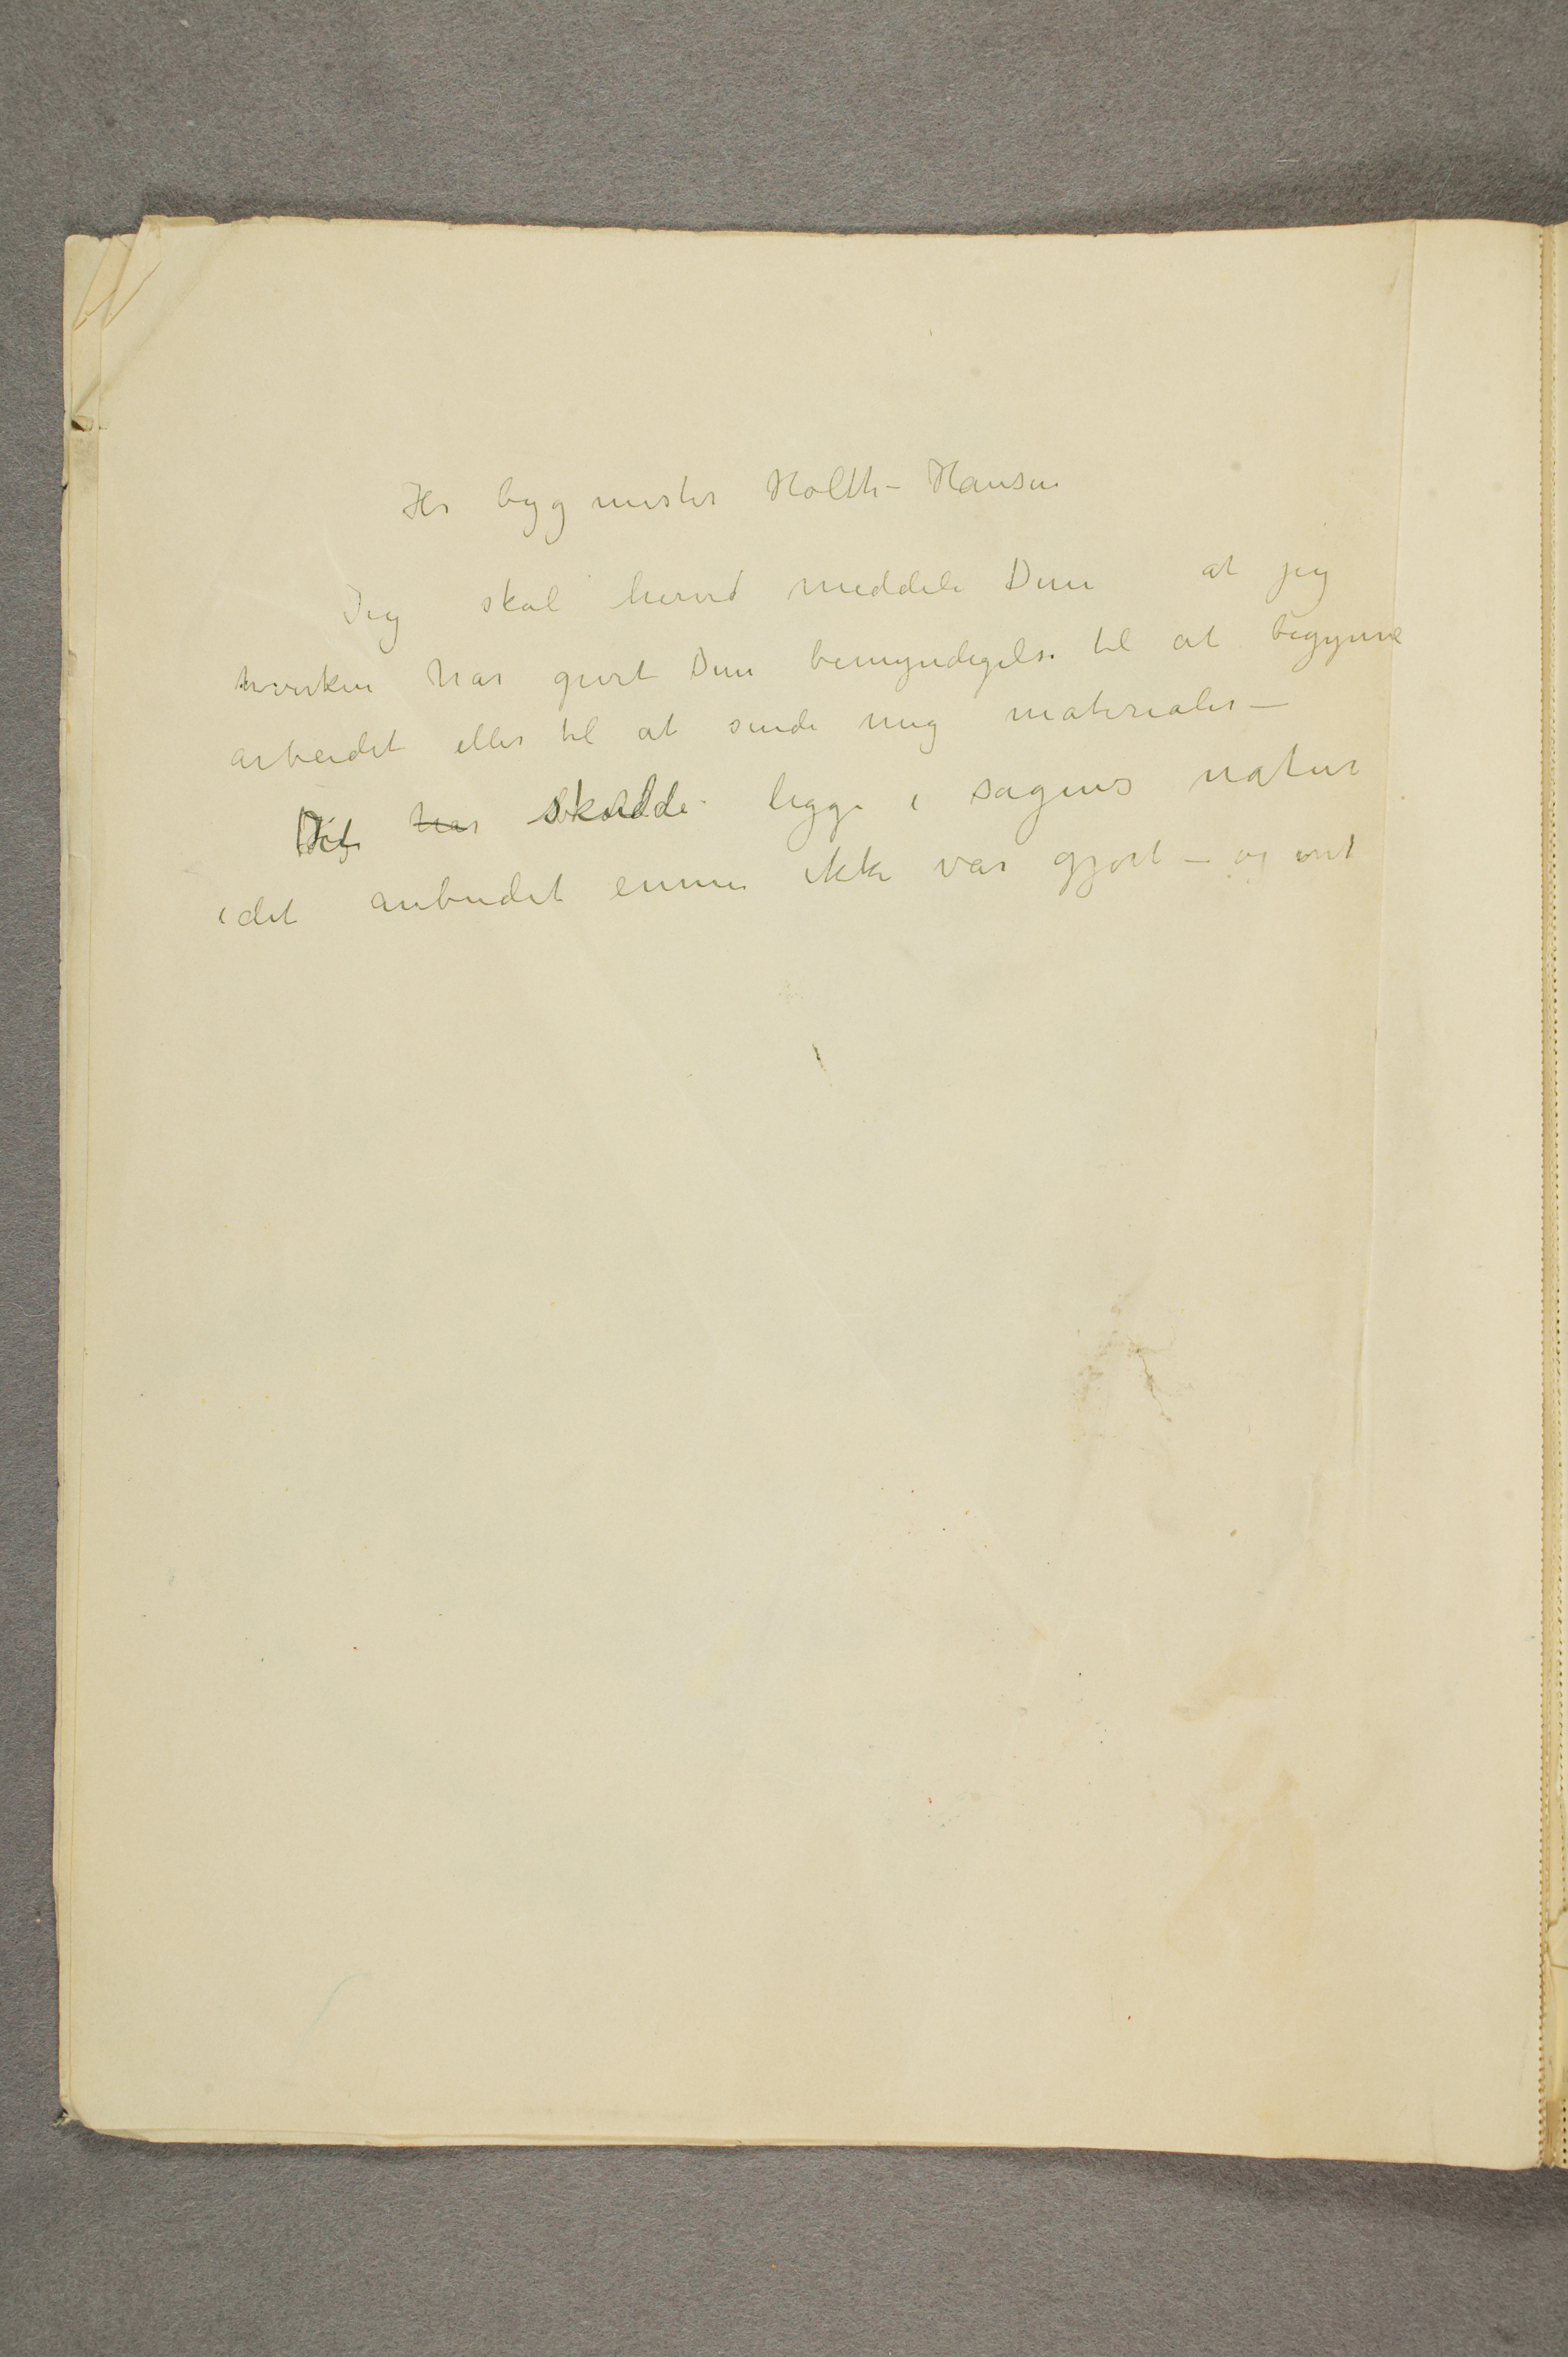 Hr bygmester Holth-Hansen
Jeg skal herved meddele Dem at jeg
hverken har givet Dem bemyndigelse til at begynne
arbeidet eller til at sende mig materialer –
Det har skulde ligge i sagens natur
idet anbudet ennu ikke var gjort – og